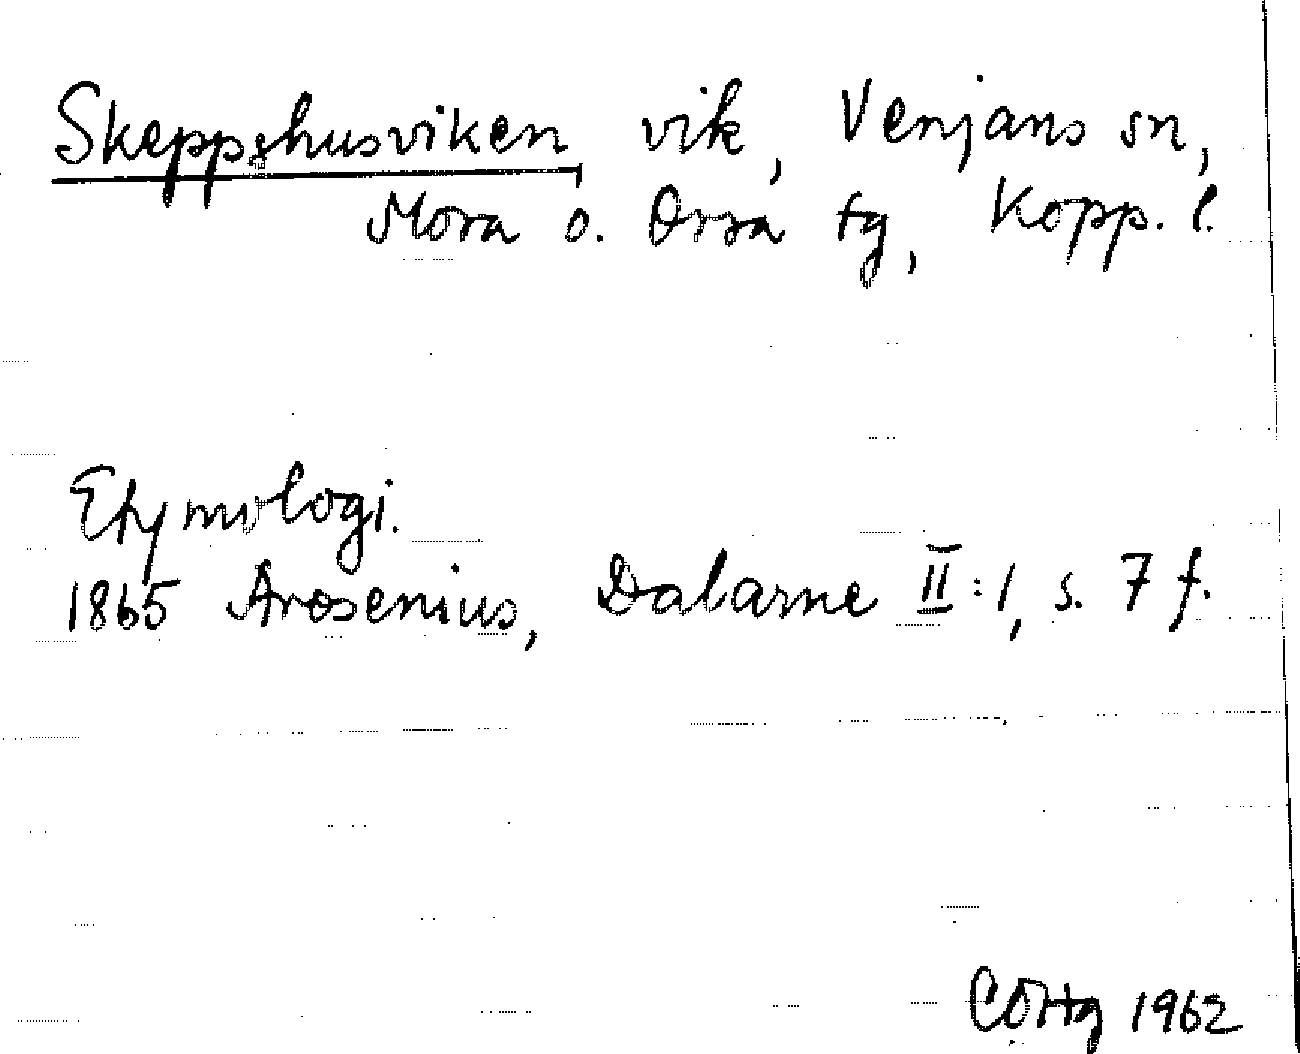 Skeppshusviken, vik, Venjans sn,
Mora o. Orsa tg, Kopp. l.
Etymologi.
1865 Arosenius, Dalarne II:1, s. 7 f.
1962